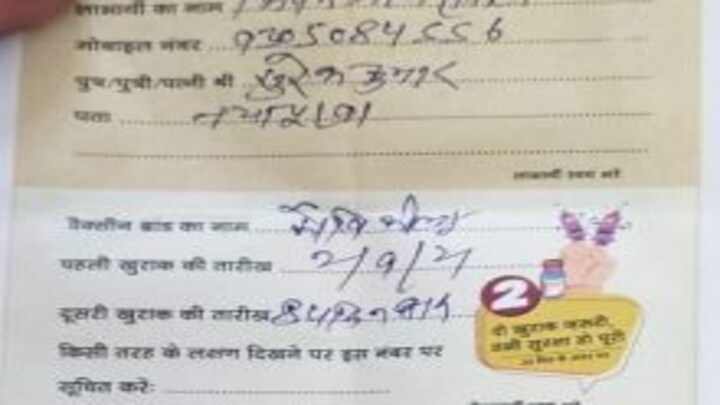 लाभार्थी का नाम
मोबाइल नंबर 9705084556
पुत्र/पुत्री/पत्नी श्री सुरेश कुमार
पता नयापुरा
लाभार्थी स्वयं भरें
वैक्सीन ब्रांड का नाम कोविशील्ड
पहली खुराक की तारीख 2/9/21
दूसरी खुराक की तारीख 84 दिन बाद
2
दो खुराक जरूरी,
तभी सुरक्षा हो पूरी
किसी तरह के लक्षण दिखने पर इस नंबर पर
सूचित करें: